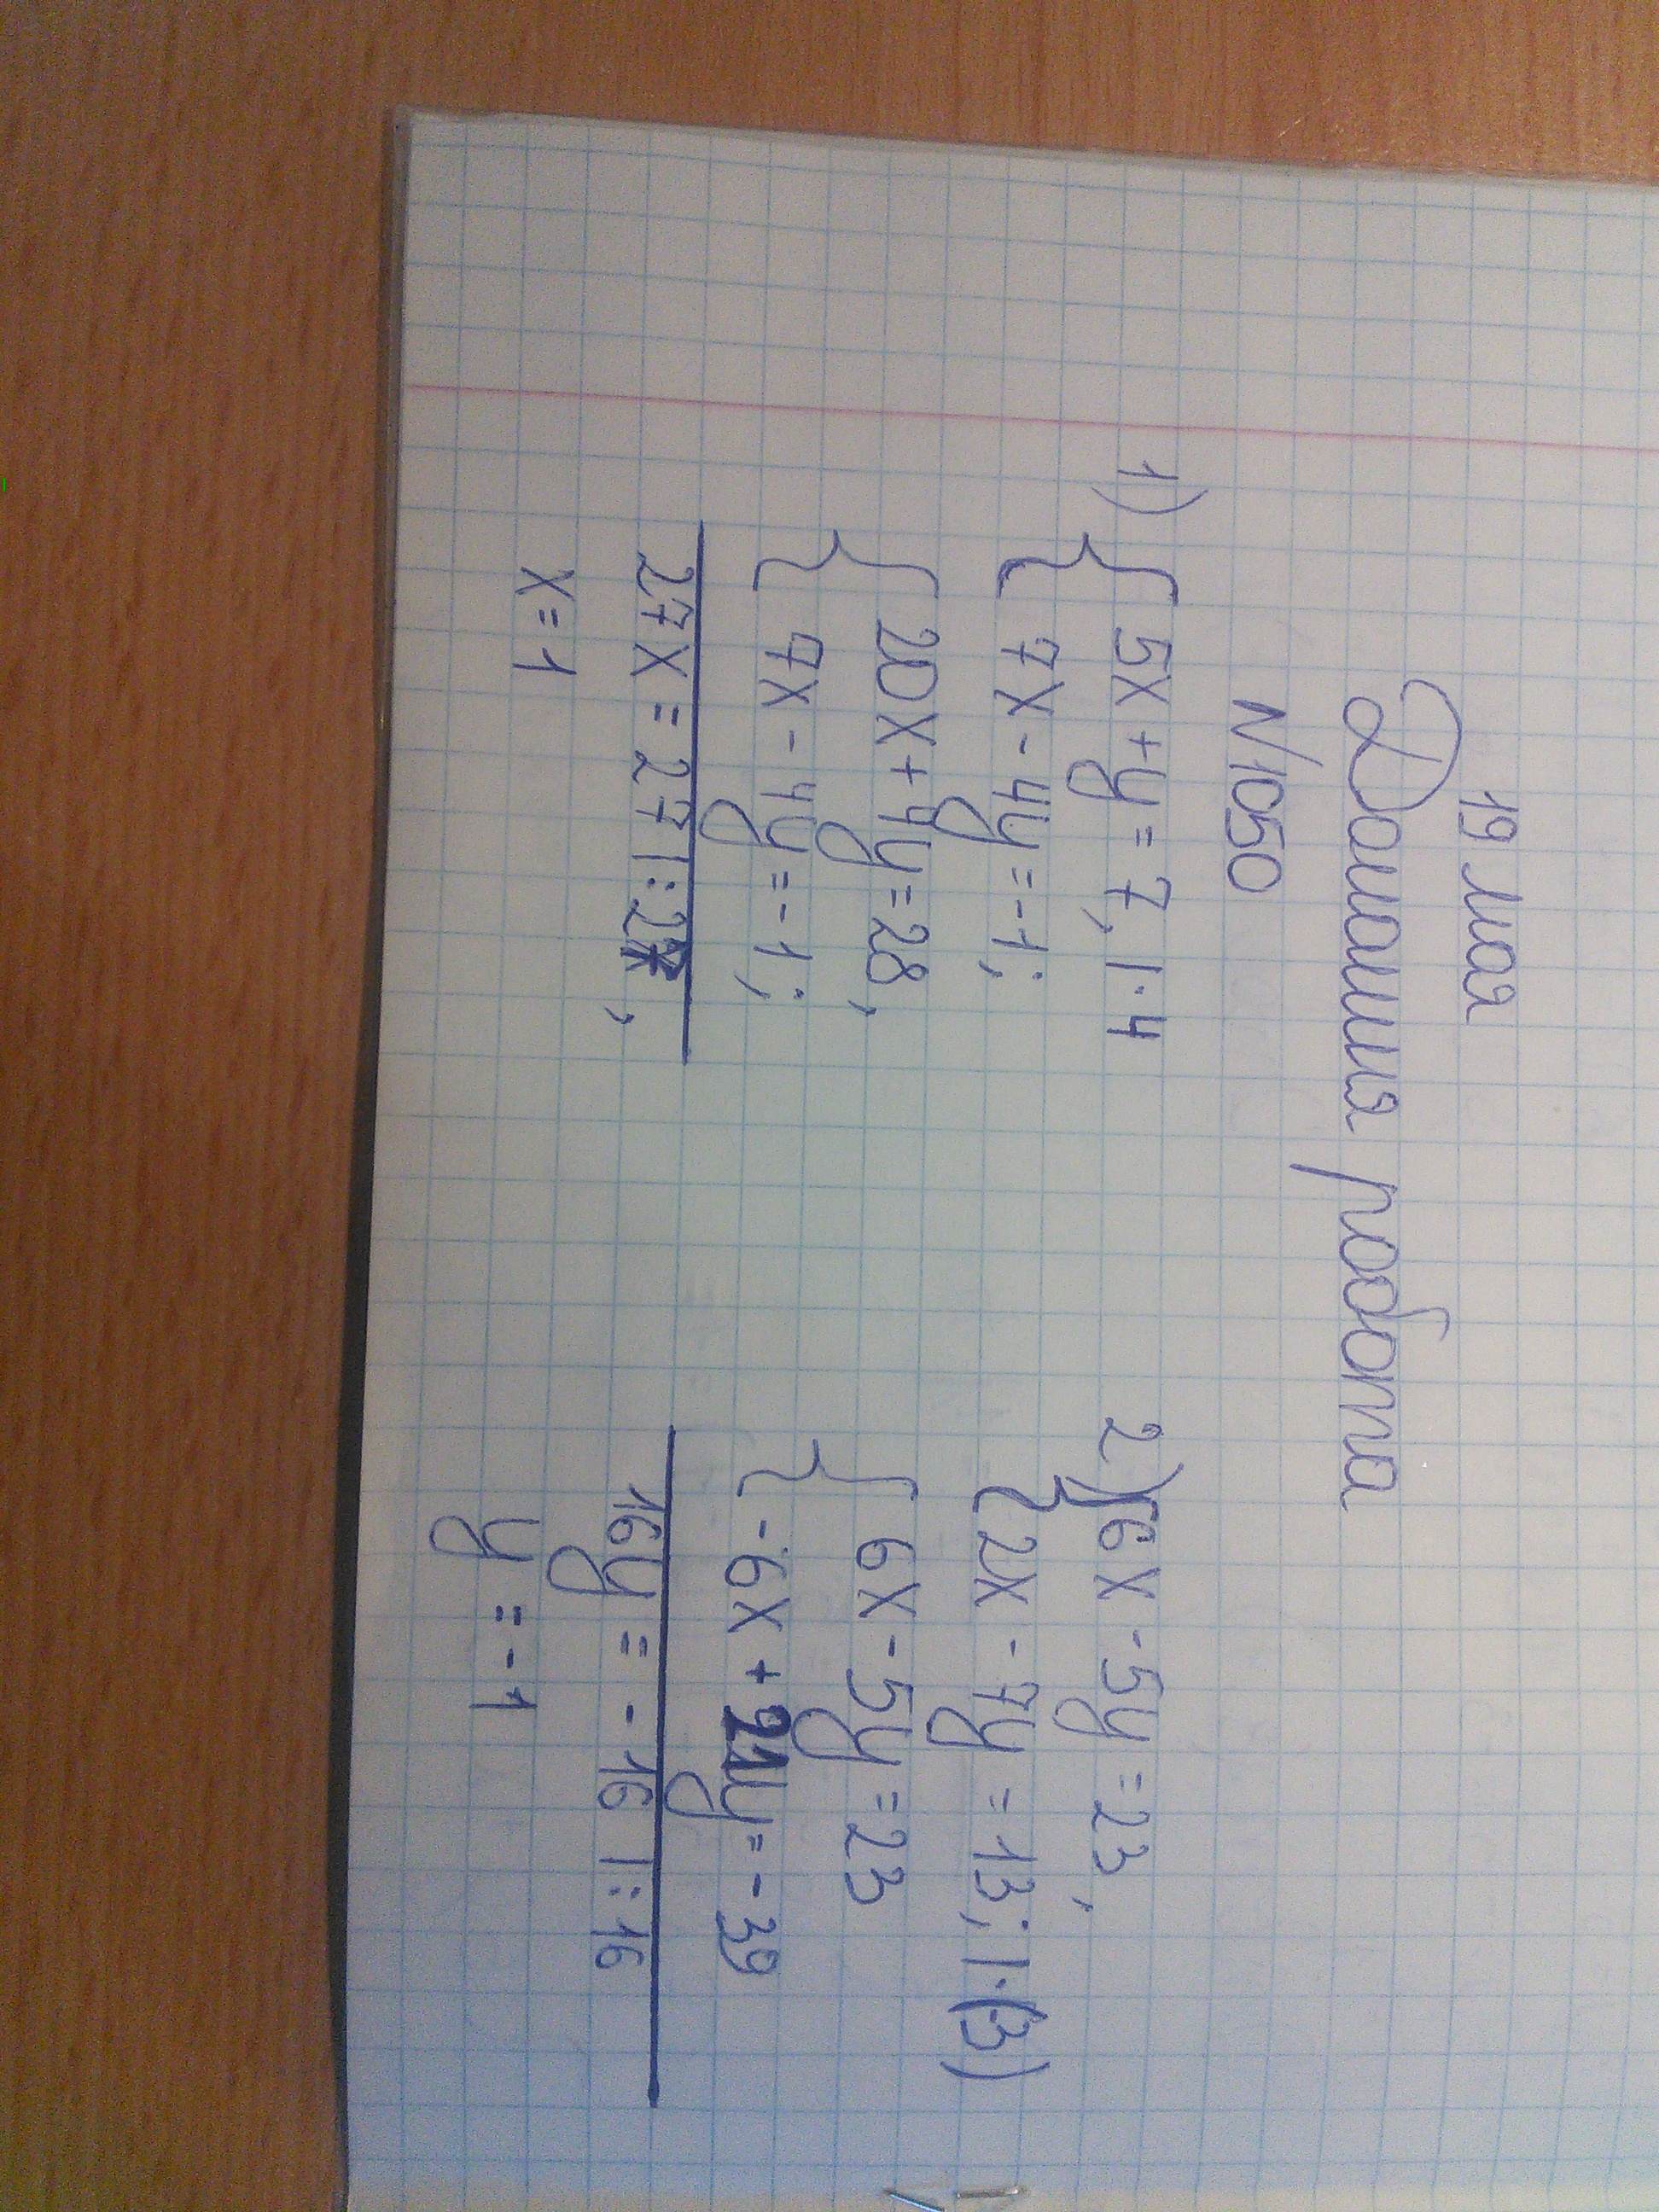 19 мая
Домашия робота
N1050
1) { 5x + y = 7, | · 4
7x - 4y = -1;
{ 20x + 4y = 28,
7x - 4y = -1;
27x = 27 | : 27,
x = 1
2) { 6x - 5y = 23,
2x - 7y = 13; | · (-3)
{ 6x - 5y = 23
-6x + 21y = -39
16y = -16 | : 16
y = -1